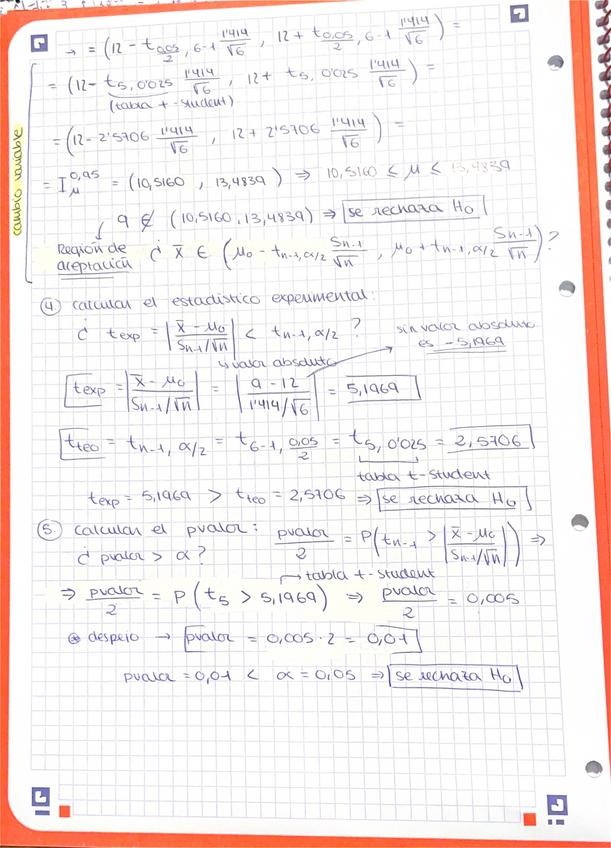 → = (12 - t 0,05/2, 6-1 1'414/√6 , 12 + t 0,05/2, 6-1 1'414/√6) =
= (12 - t5, 0'025 1'414/√6 , 12 + t5, 0'025 1'414/√6) =
(tabla t-student)
= (12 - 2'5706 1'414/√6 , 12 + 2'5706 1'414/√6) =
cambio variable
= I μ 0,95 = (10,5160 , 13,4839) ⇒ 10,5160 ≤ μ ≤ 13,4839
9 ∉ (10,5160, 13,4839) ⇒ se rechaza H0
Región de aceptación ¿ x̄ ∈ (μ0 - tn-1, α/2 Sn-1/√n , μ0 + tn-1, α/2 Sn-1/√n)?
④ calcular el estadístico experimental:
¿ texp = |x̄ - μ0 / Sn-1/√n| < tn-1, α/2 ?
sin valor absoluto
es -5,1969
↳ valor absoluto
texp = |x̄ - μ0 / Sn-1/√n| = |9 - 12 / 1'414/√6| = 5,1969
tteo = tn-1, α/2 = t6-1, 0,05/2 = t5, 0'025 = 2,5706
tabla t-student
texp = 5,1969 > tteo = 2,5706 ⇒ se rechaza H0
⑤ calcular el pvalor: pvalor/2 = P(tn-1 > |x̄ - μ0 / Sn-1/√n|) ⇒
¿ pvalor > α?
→ tabla t-student
⇒ pvalor/2 = P(t5 > 5,1969) ⇒ pvalor/2 = 0,005
despejo → pvalor = 0,005·2 = 0,01
pvalor = 0,01 < α = 0,05 ⇒ se rechaza H0